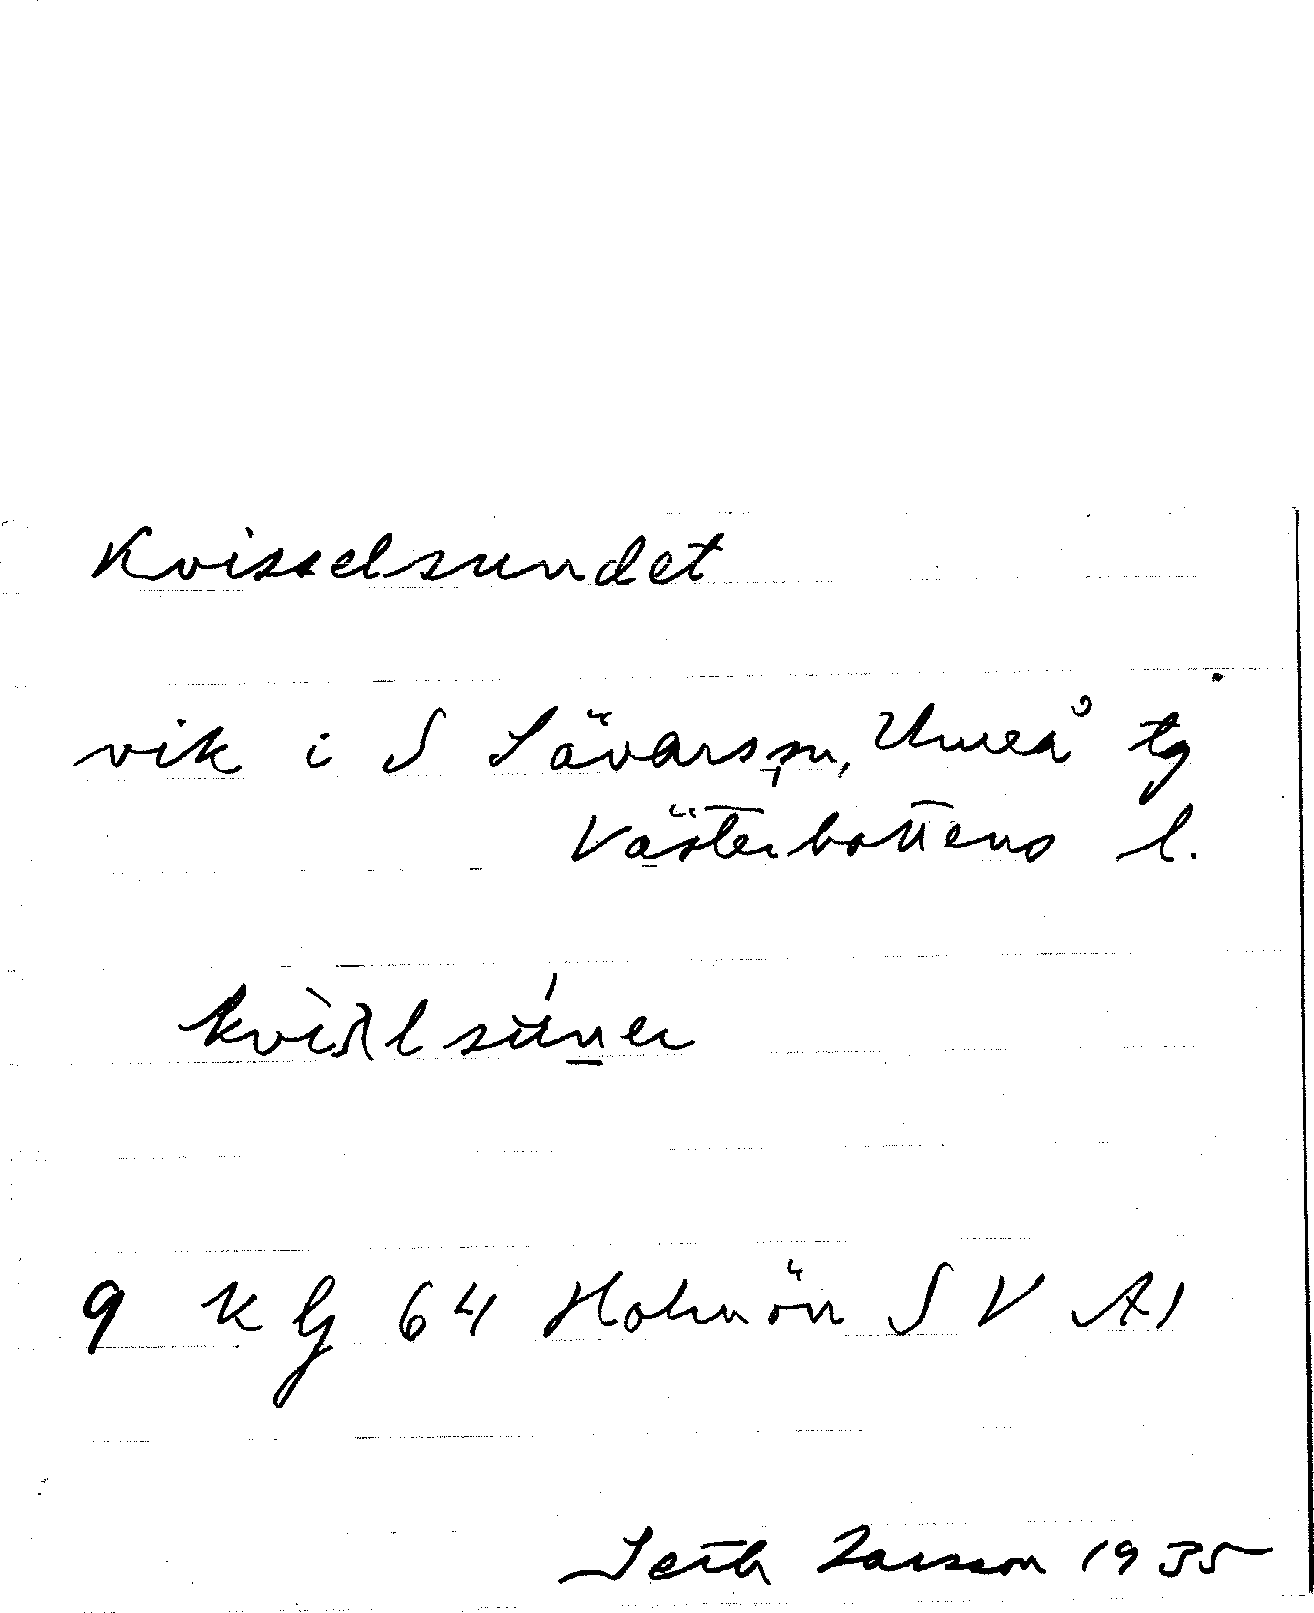 Kvisselsundet
vik i S Sävars sn, Umeå tg
Västerbottens l.
9 K lg 64 Holmön SV A1
Seth Larsson 1935